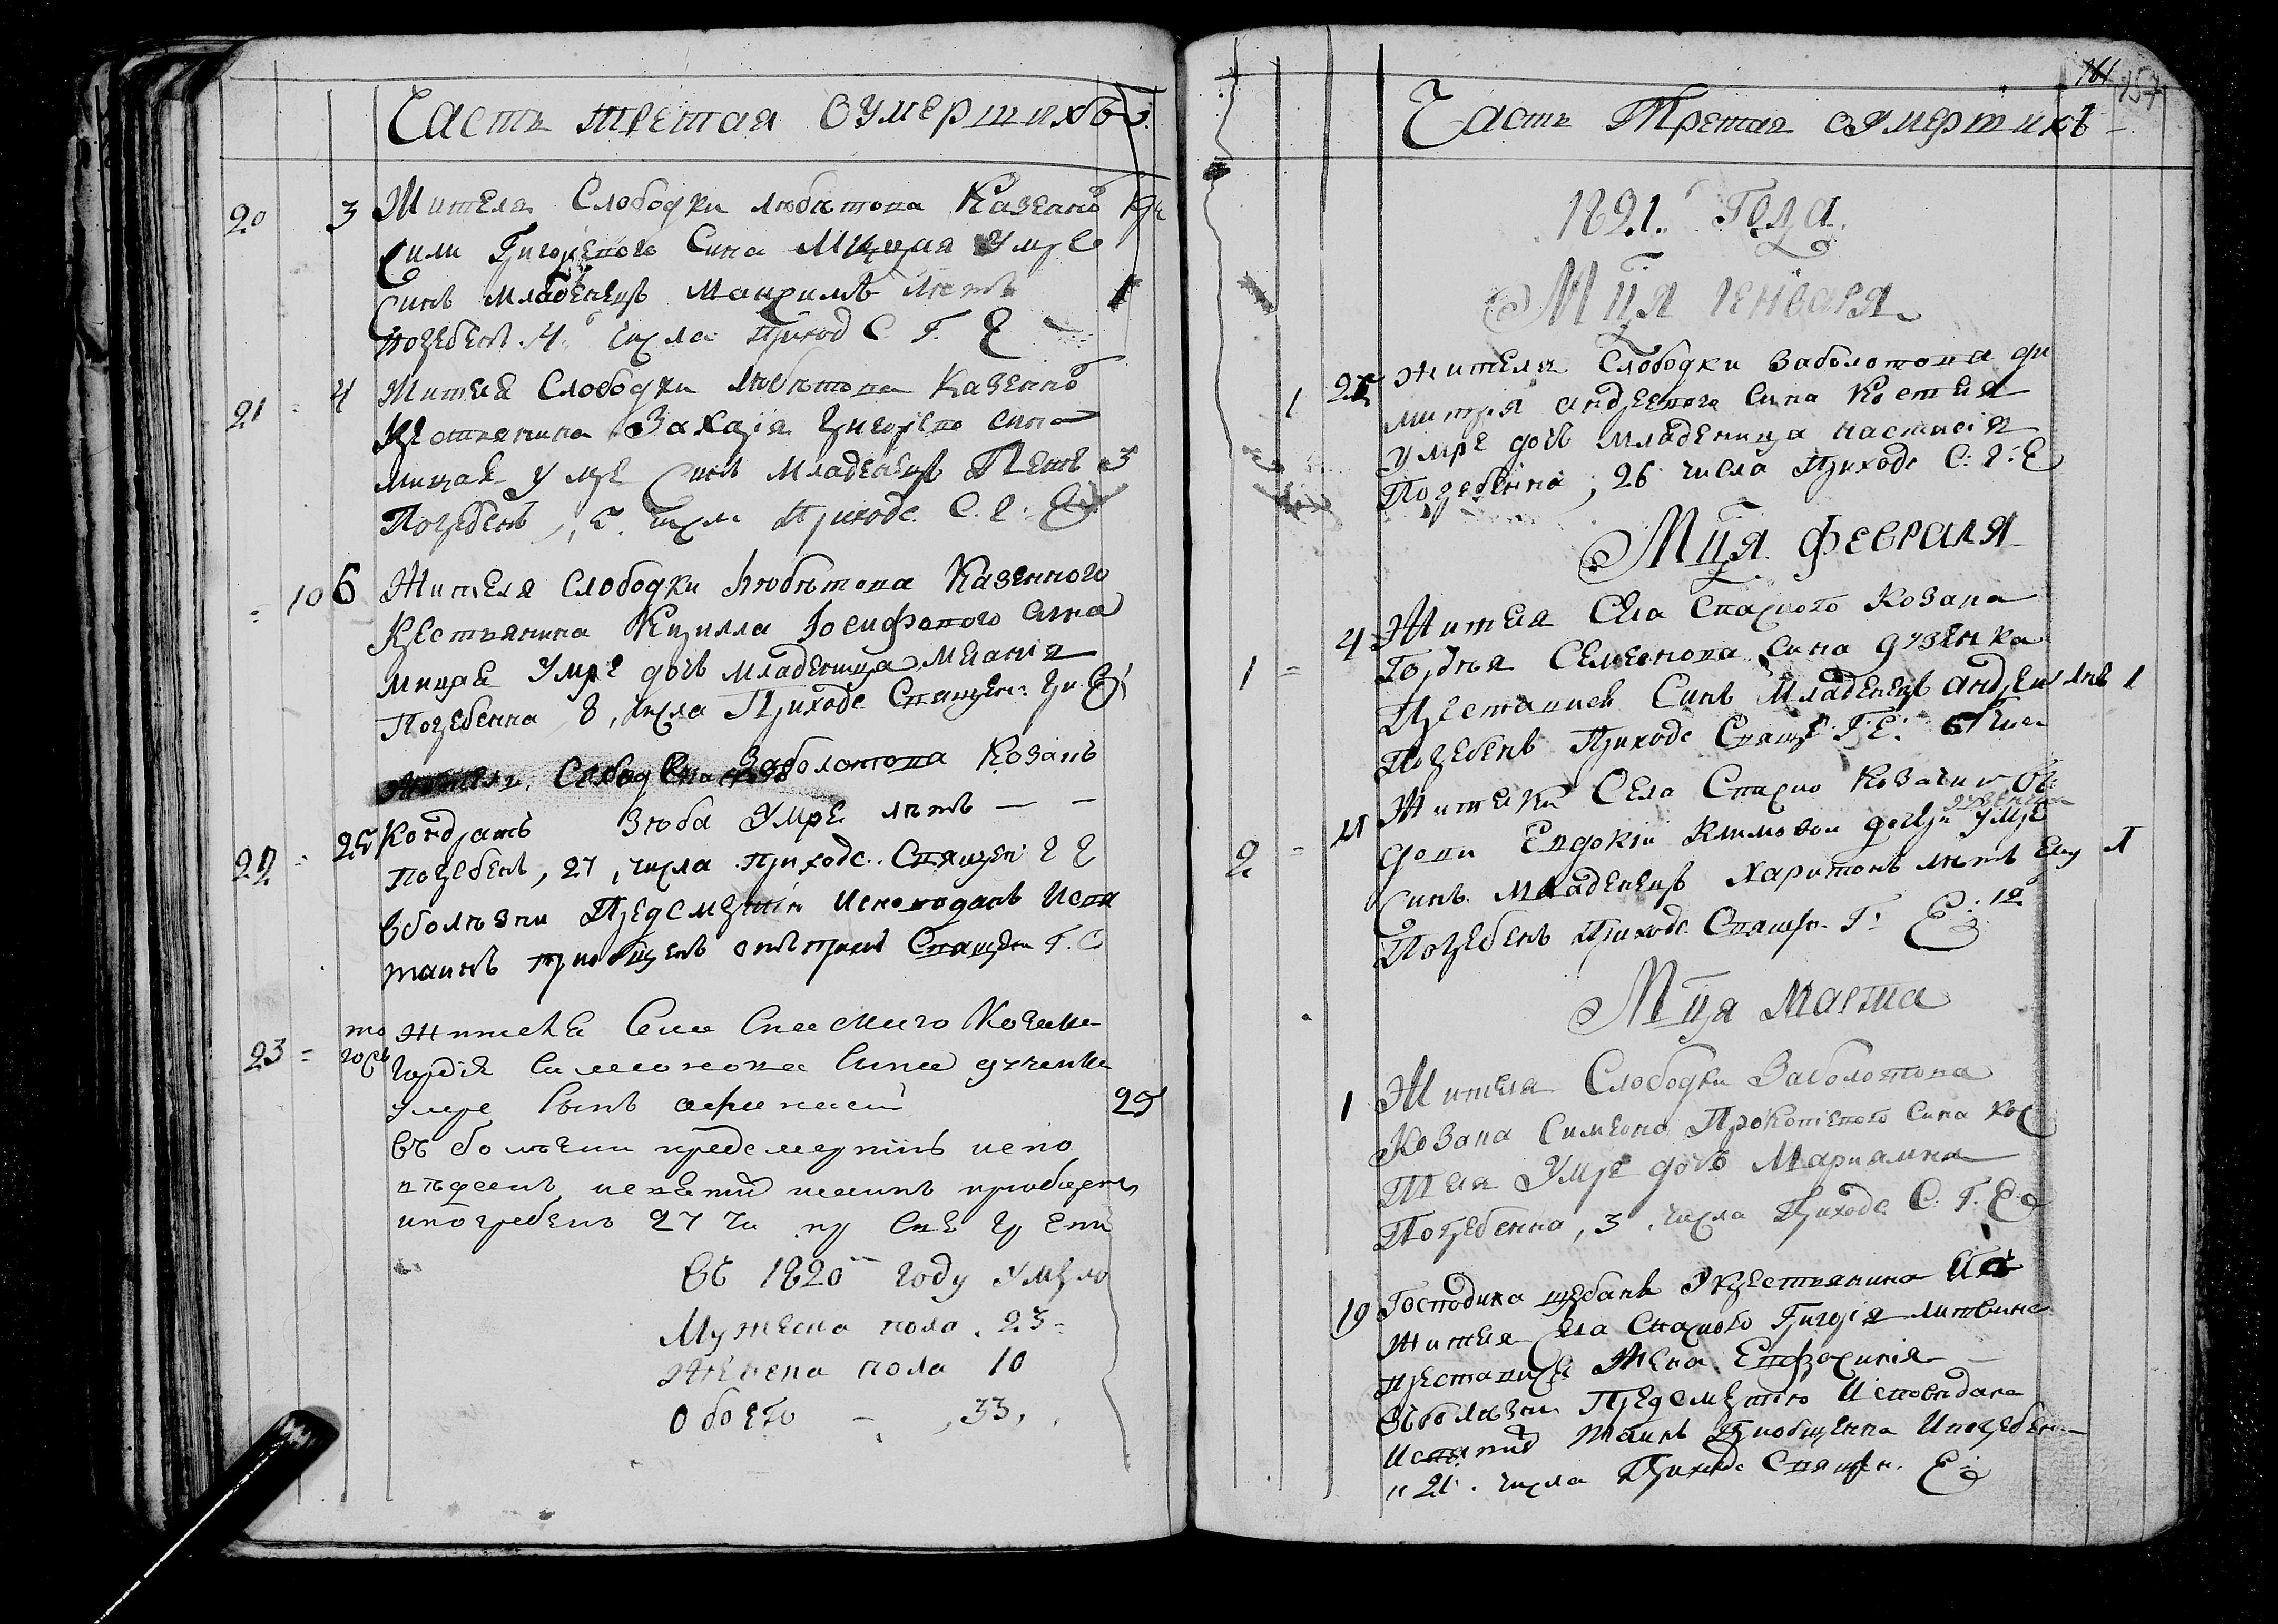 Часть третая о умершихъ
20 3 Жителя Слободки Любитова Казено
Сили Григорєвого Сина Мицая Умре
Синъ младенецъ Мануилъ Летъ 1
погребенъ 4 числа Приход С Г Е
21 4 Жителя Слободки Любитова Казенно
Крестянина Захарія Григорєва сина
Мицая Умре Синъ Младенецъ Петръ 3
Погребенъ, 5 числа Приходс. С. Г. Е
10 6 Жителя Слободки Любитова Казенного
Крестьянина Кирилла Іосифового Сина
Мицая Умре дочъ младеница Меланія
Погребенна 8, числа Приходс Священ: Гри Е:
Заболотова Козакъ
22 25 Кондратъ Зюба Умре летъ — —
погребенъ, 27, числа приходс. Священ Г Е
вболезни Предсмертнїи Исповоданъ Исвя
таинъ приобщенъ Священ Г. Е
23 Жителя Села Спаского Козака
Гордія Симеонова Сина дузенка
умре Сынъ афанасій 25
въ болезни предсмертній испо
ведеанъ исвятій таинъ приобщенъ
ипогребенъ 27 чи пр Свя Гр Епи
Въ 1820 году Умерло
Мужеска пола. 23
Женска пола 10
Обоего — 33,
161
157
Часть Третая о умершихъ
1821. Года
Мца Генваря
1 25 Жителя Слободки Заболотова ди
митрія андреевого Сина Костия
умре дочъ младеница настасія
Погребенна, 26 числа Приходс С. Г. Е
Мца Февраля
1 4 Жителя Села Спаского Козака
Гордѣя Семенова Сина дузенка
Преставися Синъ Младенецъ андрей летъ 1
Погребенъ Приходс Свящ Г. Е: 6 числа
2 11 Жителки Села Спаско Козачки
Евдокіи Климовои дочери Умре
Синъ Младенецъ Харитонъ летъ Ему 1
Погребенъ Приходс Священ. Г: Е: 12
Мца Марта
1 Жителя Слободки Заболотова
Козака Симеона Прокопієвого Сина Кос
тия Умре дочъ Мариамна
Погребенна, 3 числа Приходс С. Г. Е
19 Господина Крестянина
Жителя Села Спаского Григорія литвина
преставися Жена Евфросинія
вболезни Предсмертно Исповидана
Исвятий Таинъ Приобщенна Ипогребен
21. числа Приходс Священ. Е